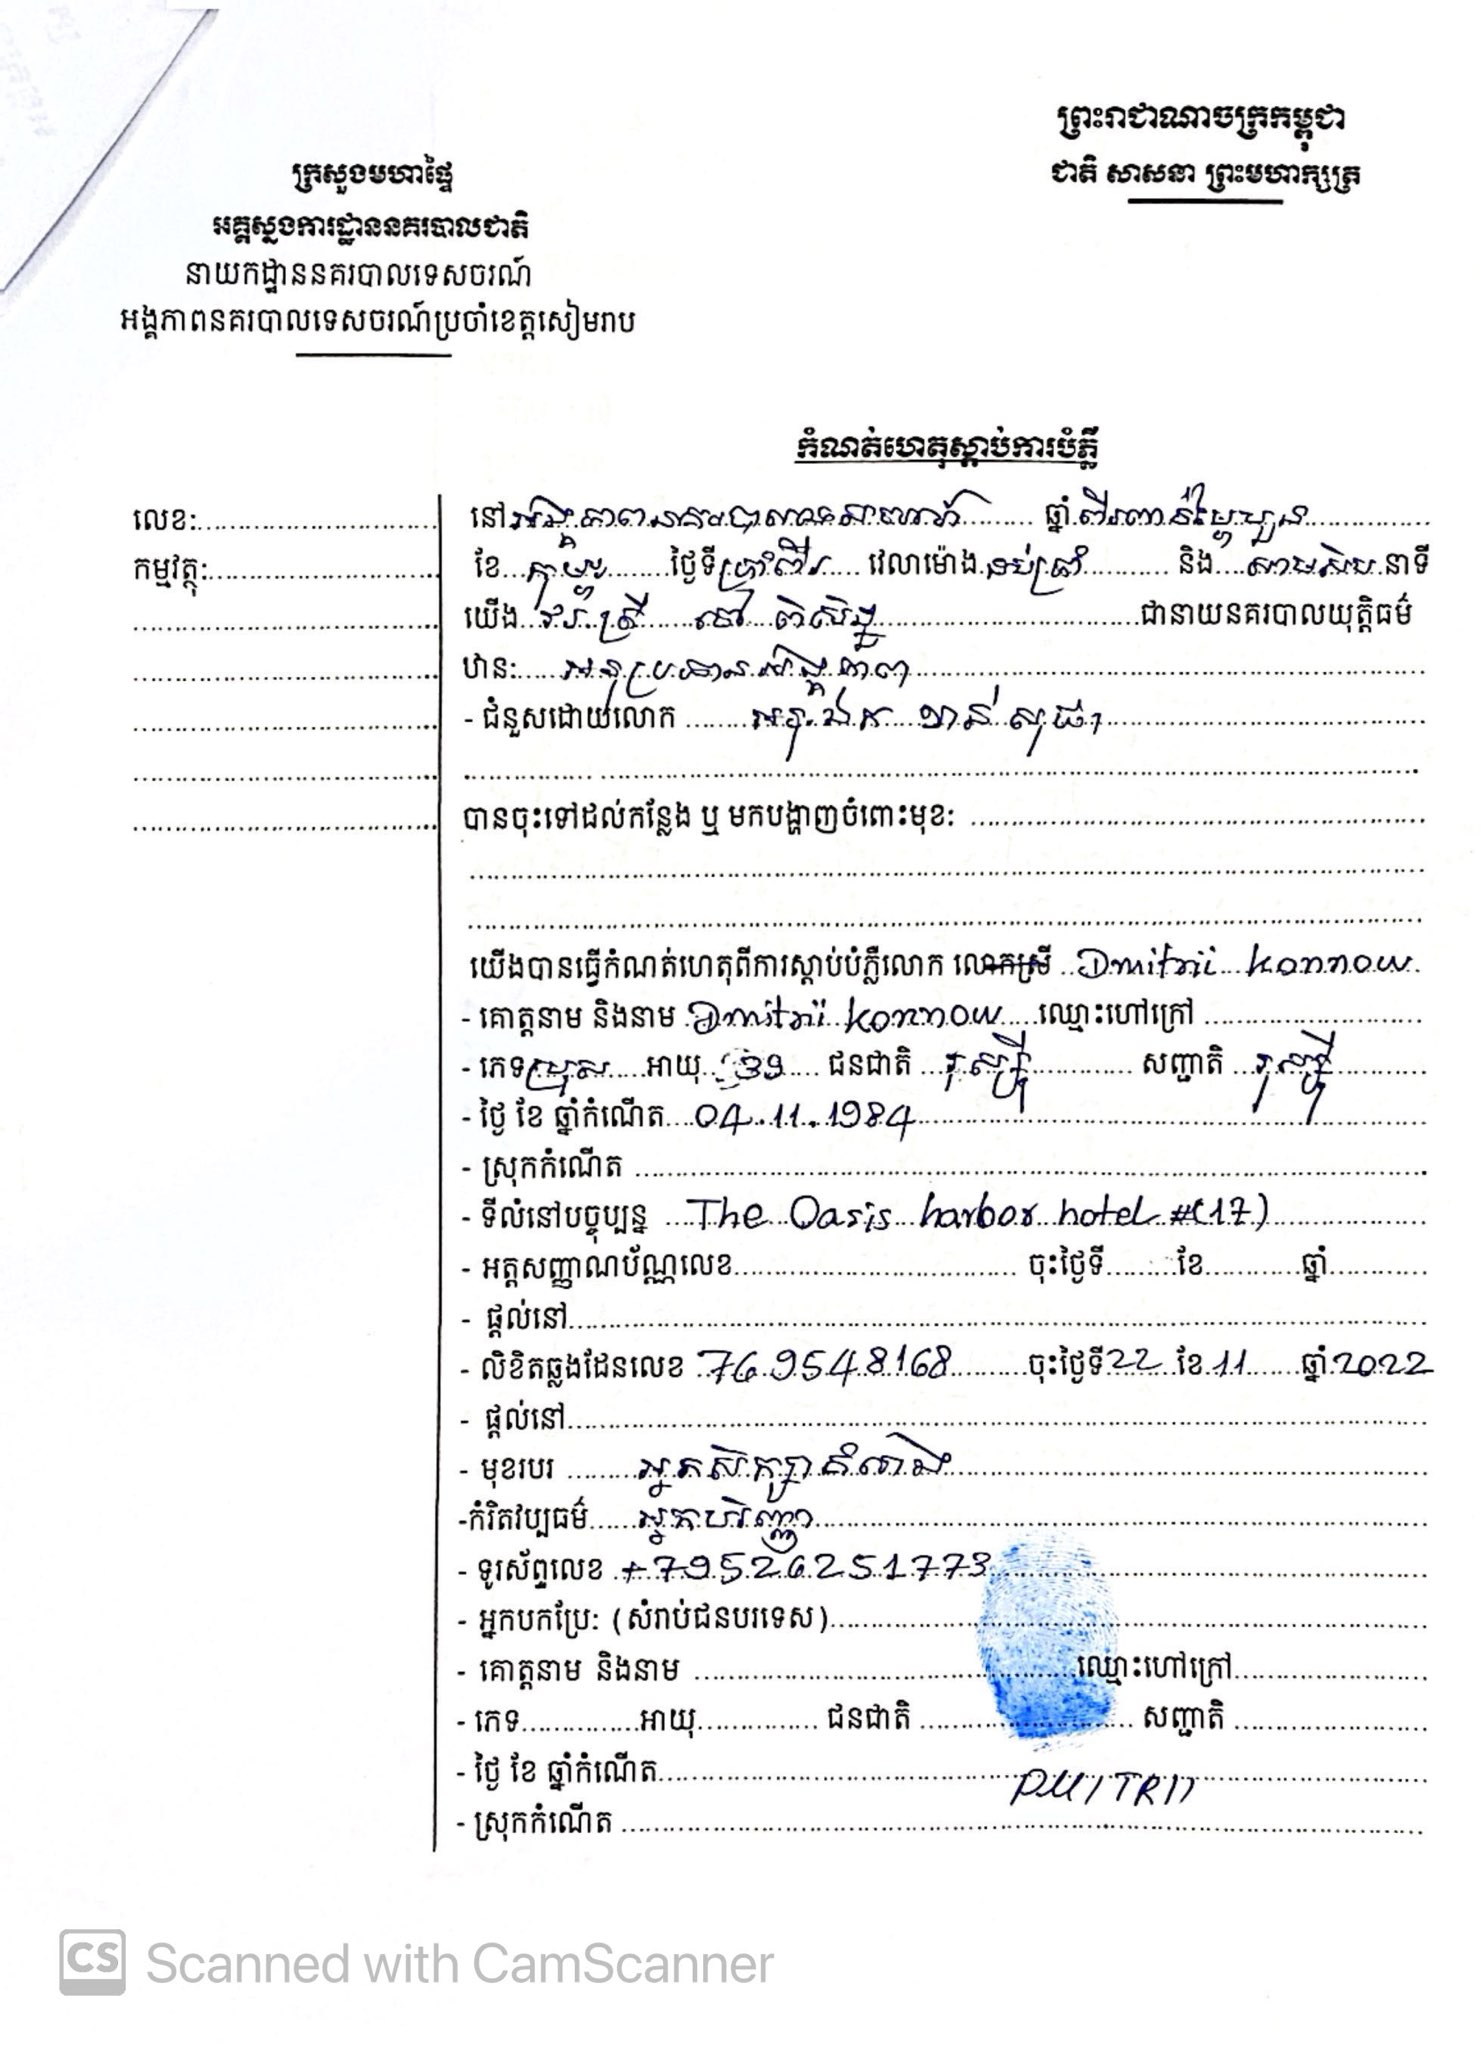 ព្រះរាជាណាចក្រកម្ពុជា
ជាតិ សាសនា ព្រះមហាក្សត្រ
ក្រសួងមហាផ្ទៃ
អគ្គស្នងការដ្ឋាននគរបាលជាតិ
នាយកដ្ឋាននគរបាលទេសចរណ៍
អង្គភាពនគរបាលទេសចរណ៍ប្រចាំខេត្តសៀមរាប
កំណត់ហេតុស្តាប់ការបំភ្លឺ
លេខ:
កម្មវត្ថុ:
នៅ អង្គភាពនគរបាលទេសចរណ៍ ឆ្នាំ ពីរពាន់ម្ភៃបួន
ខែ កុម្ភៈ ថ្ងៃទី ប្រាំពីរ វេលាម៉ោង ដប់ប្រាំ និង សាមសិប នាទី
យើង វរៈត្រី ពិសិដ្ឋ ជានាយនគរបាលយុត្តិធម៌
ឋានៈ អនុប្រធានអង្គភាព
- ជំនួសដោយលោក
បានចុះទៅដល់កន្លែង ឬ មកបង្ហាញចំពោះមុខ:
យើងបានធ្វើកំណត់ហេតុពីការស្តាប់បំភ្លឺលោក លោកស្រី Dmitrii konnow
- គោត្តនាម និងនាម Dmitrii konnow ឈ្មោះហៅក្រៅ
- ភេទ ប្រុស អាយុ 39 ជនជាតិ រុស្ស៊ី សញ្ជាតិ រុស្ស៊ី
- ថ្ងៃ ខែ ឆ្នាំកំណើត 04.11.1984
- ស្រុកកំណើត
- ទីលំនៅបច្ចុប្បន្ន The Oasis harbor hotel #(17)
- អត្តសញ្ញាណប័ណ្ណលេខ ចុះថ្ងៃទី ខែ ឆ្នាំ
- ផ្តល់នៅ
- លិខិតឆ្លងដែនលេខ 769548168 ចុះថ្ងៃទី 22 ខែ 11 ឆ្នាំ 2022
- ផ្តល់នៅ
- មុខរបរ
-កំរិតវប្បធម៌ អ្នកបរិញ្ញា
- ទូរស័ព្ទលេខ +79526251773
- អ្នកបកប្រែ: (សំរាប់ជនបរទេស)
- គោត្តនាម និងនាម ឈ្មោះហៅក្រៅ
- ភេទ អាយុ ជនជាតិ សញ្ជាតិ
- ថ្ងៃ ខែ ឆ្នាំកំណើត
DMITRII
- ស្រុកកំណើត
CS Scanned with CamScanner